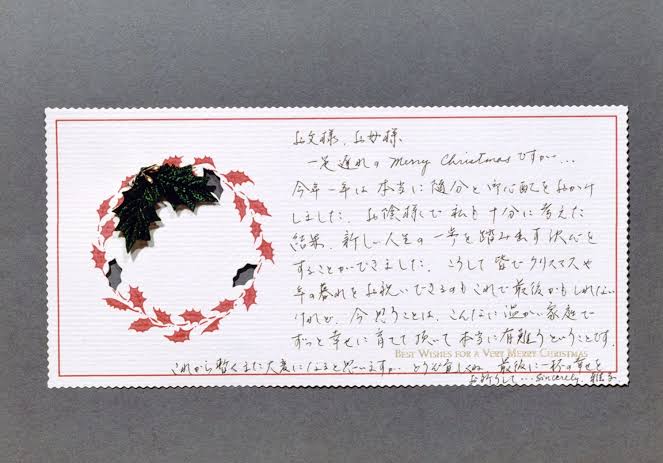 お父様、お母様、
一足遅れの Merry Christmas ですが…
今年一年は本当に随分と御心配をおかけ
しました。お陰様で私も十分に考えた
結果、新しい人生の一歩を踏み出す決心を
することができました。こうして皆でクリスマスや
年の暮れをお祝いできるのもこれで最後かもしれない
けれど、今思うことは、こんなに温かい家庭で
ずっと幸せに育てて頂いて本当に有難うということです。
BEST WISHES FOR A VERY MERRY CHRISTMAS
これから暫くまた大変になると思いますが、どうぞ宜しくね 最後に一杯の幸せを
お祈りして…Sincerely, 雅子